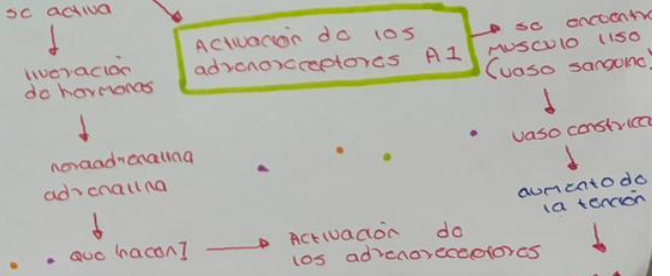 se activa
liveración
de hormonas
noraadrenalina
adrenalina
que hacen?
Activación de
los adrenoreceptores
Activación de los
adrenoreceptores A1
se encuentra
musculo liso
(vaso sanguine
vaso constricc
aumento de
la tención